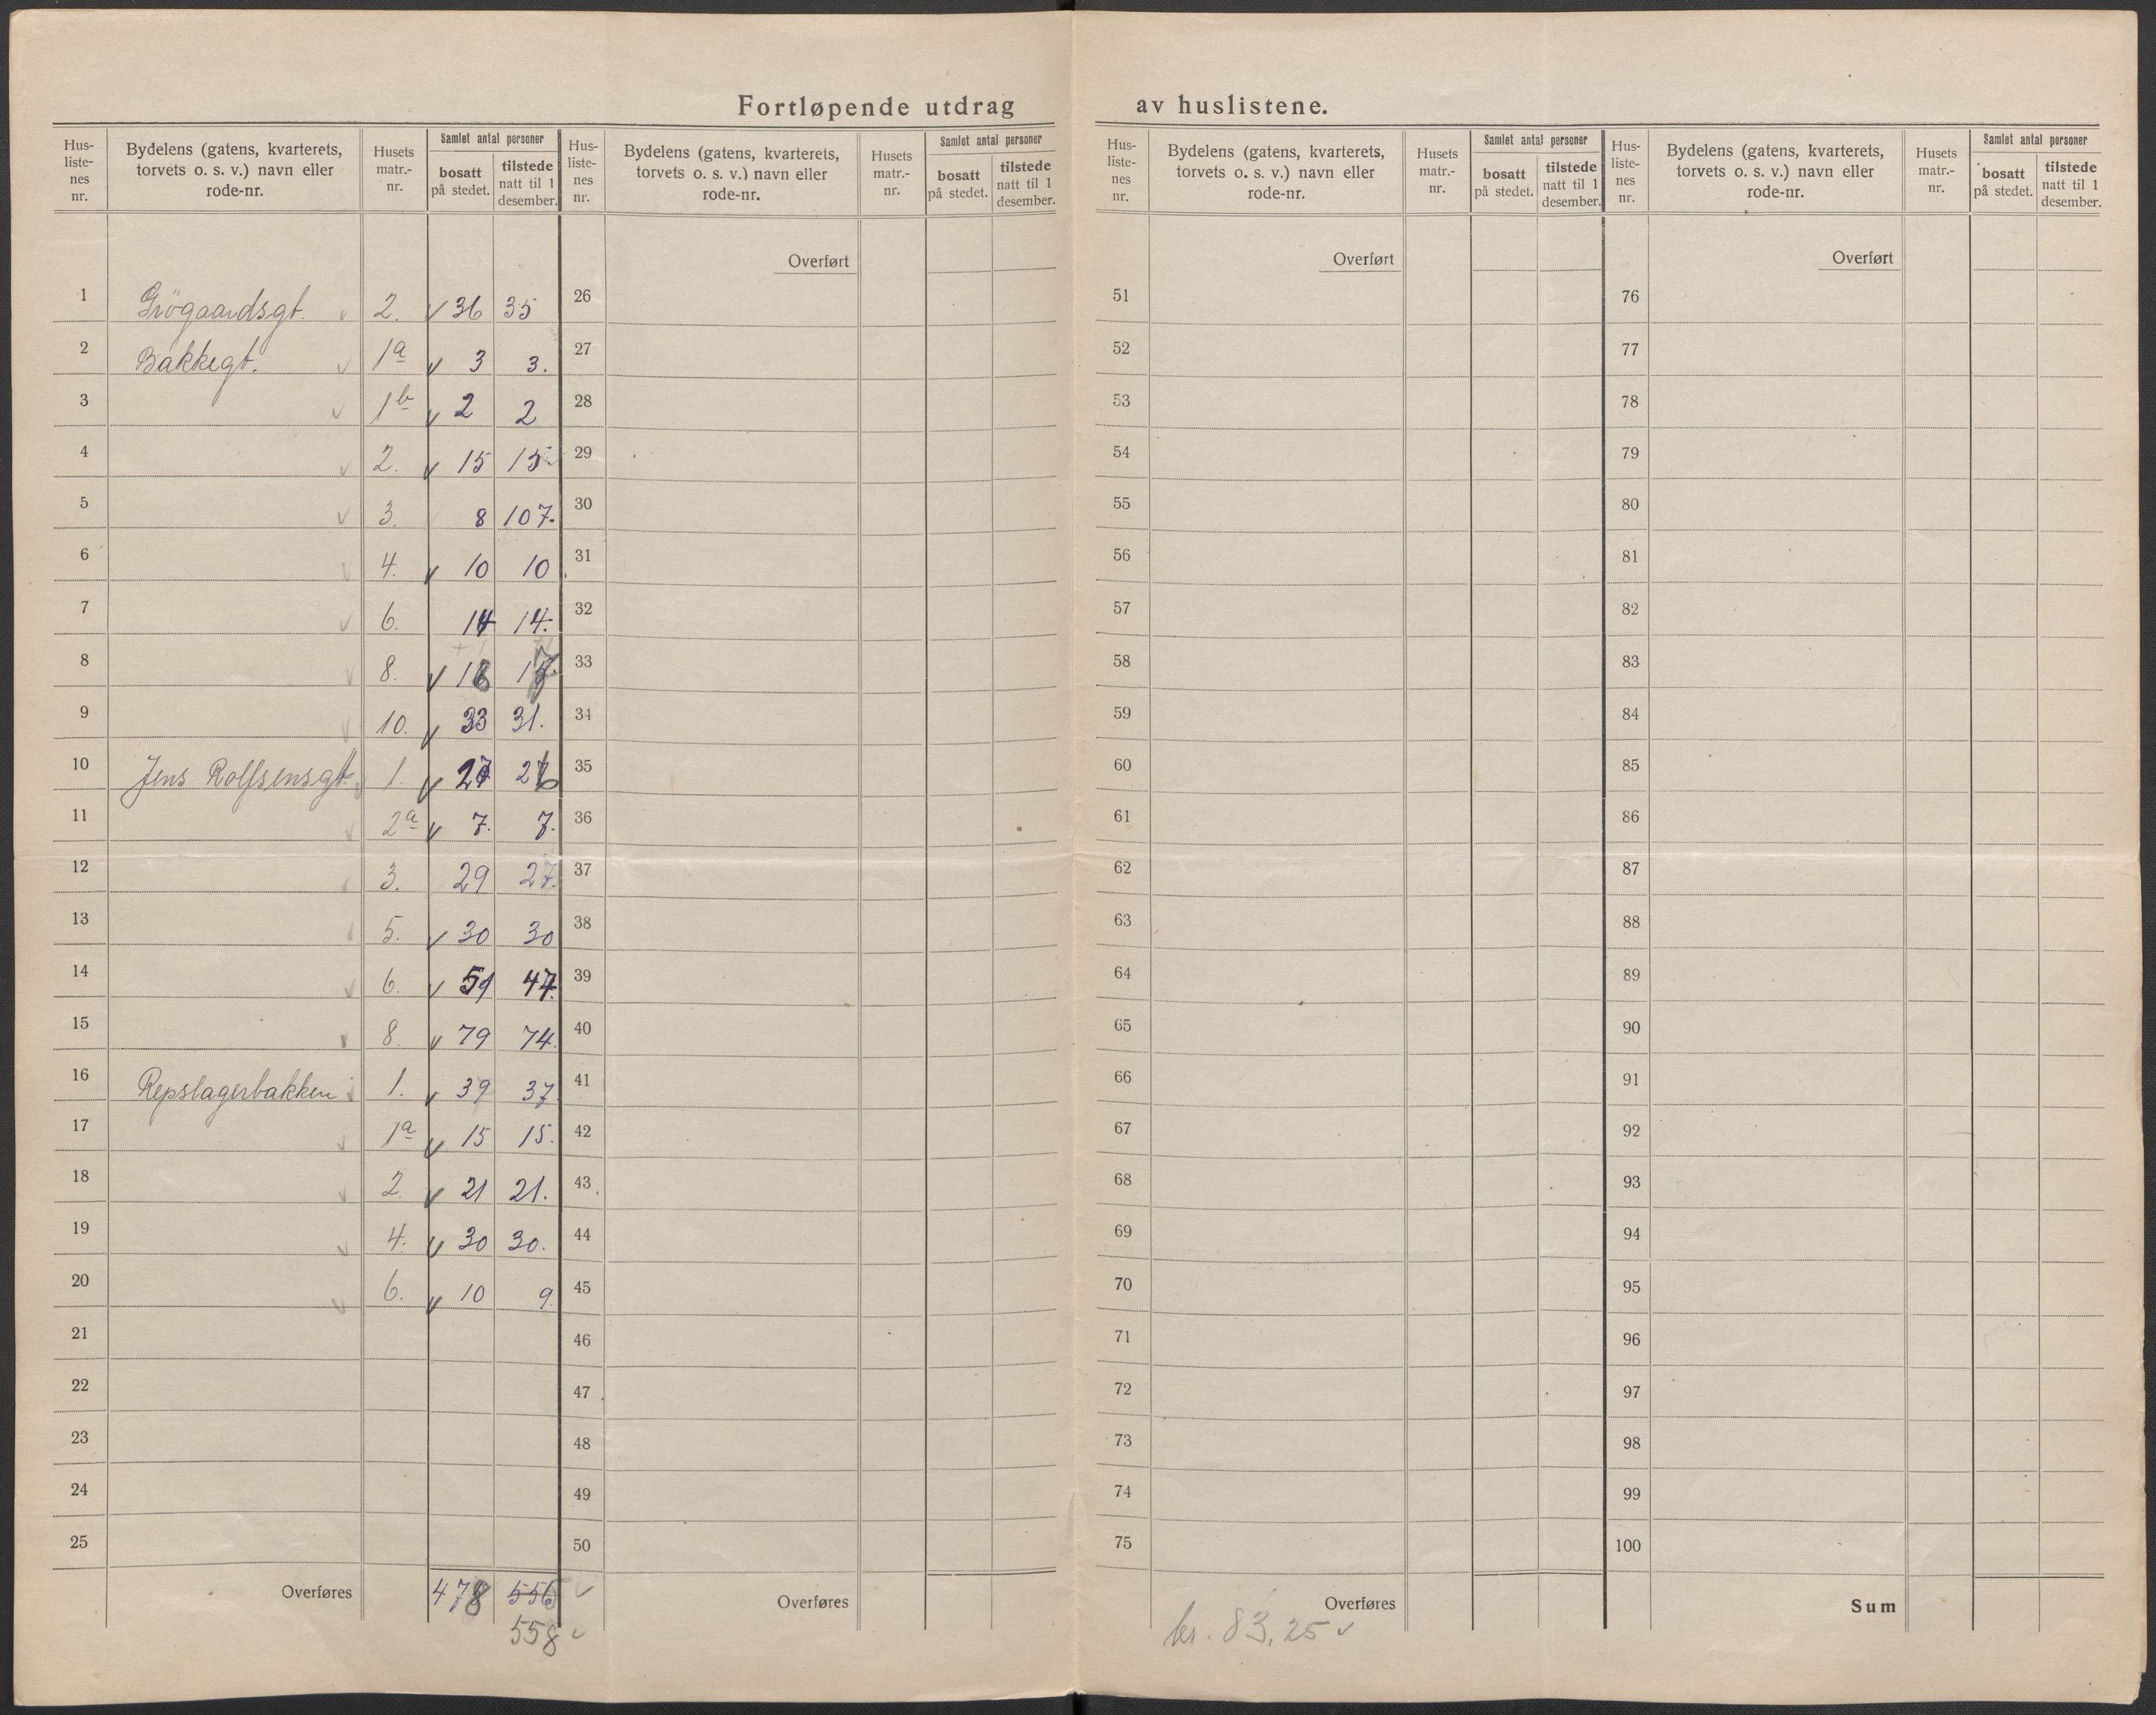 Fortløpende utdrag av huslistene.
Hus-listenes nr. Bydelens (gatens, kvarterets, torvets o. s. v.) navn eller rode-nr. Husets matr.-nr. Samlet antal personer bosatt på stedet. tilstede natt til 1 desember.
Hus-listenes nr. Bydelens (gatens, kvarterets, torvets o. s. v.) navn eller rode-nr. Husets matr.-nr. Samlet antal personer bosatt på stedet. tilstede natt til 1 desember.
Hus-listenes nr. Bydelens (gatens, kvarterets, torvets o. s. v.) navn eller rode-nr. Husets matr.-nr. Samlet antal personer bosatt på stedet. tilstede natt til 1 desember.
Hus-listenes nr. Bydelens (gatens, kvarterets, torvets o. s. v.) navn eller rode-nr. Husets matr.-nr. Samlet antal personer bosatt på stedet. tilstede natt til 1 desember.
Overført Overført Overført
1 Grögaardsgt. 2. 36 35 26 51 76
2 Bakkegt. 1a 3 3. 27 52 77
3 1b 2 2 28 53 78
4 2. 15 15 29 54 79
5 3. 8 107. 30 55 80
6 4. 10 10 31 56 81
7 6. 14 14. 32 57 82
8 8. 16 17 33 58 83
9 10. 33 31. 34 59 84
10 Jens Rolfsensgt. 1. 27 26 35 60 85
11 2a 7. 7. 36 61 86
12 3. 29 27. 37 62 87
13 5. 30 30 38 63 88
14 6. 51 47. 39 64 89
15 8. 79 74. 40 65 90
16 Repslagerbakken 1. 39 37 41 66 91
17 1a 15 15. 42 67 92
18 2. 21 21. 43 68 93
19 4. 30 30. 44 69 94
20 6. 10 9. 45 70 95
21 46 71 96
22 47 72 97
23 48 73 98
24 49 74 99
25 50 75 100
Overføres 478 556 Overføres Overføres Sum
558 kr. 83,25